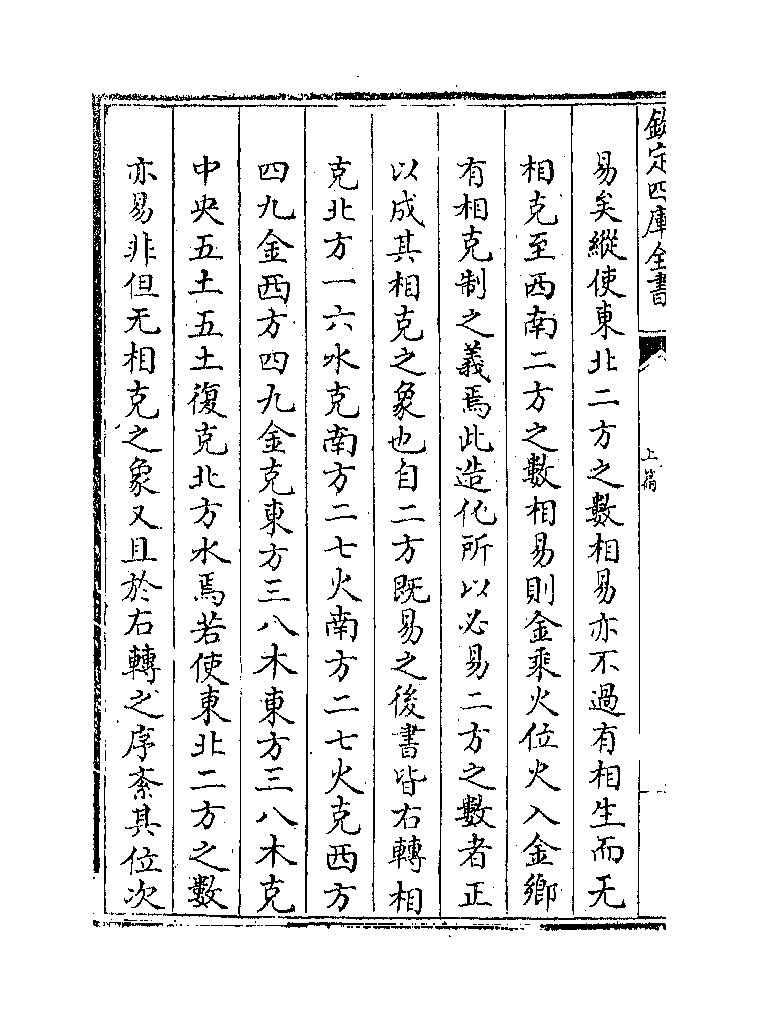 欽定四庫全書
上篇
易矣縱使東北二方之數相易亦不過有相生而无
相克至西南二方之數相易則金乘火位火入金鄉
有相克制之義焉此造化所以必易二方之數者正
以成其相克之象也自二方既易之後書皆右轉相
克北方一六水克南方二七火南方二七火克西方
四九金西方四九金克東方三八木東方三八木克
中央五土五土復克北方水焉若使東北二方之數
亦易非但无相克之象又且於右轉之序紊其位次